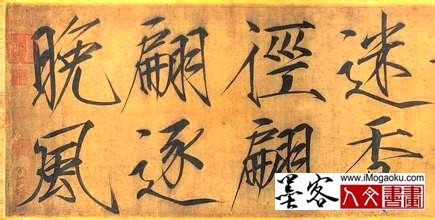 迷香
徑翩
翩逐
晚風
www.iMogaoku.com
墨客
人文書畫